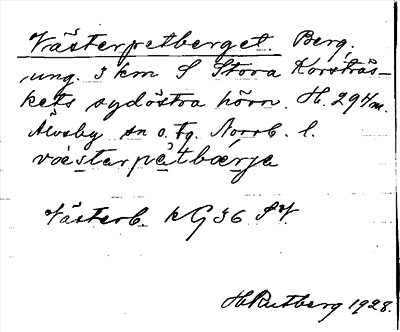 Västerpetberget. Berg,
ung. 3 km S Stora Korsträs-
kets sydöstra hörn. H. 294 m.
Älvsby sn o. tg. Norrb. l.
væsterpètbærje
Västerb. k G 36 SV.
H Rutberg 1928.